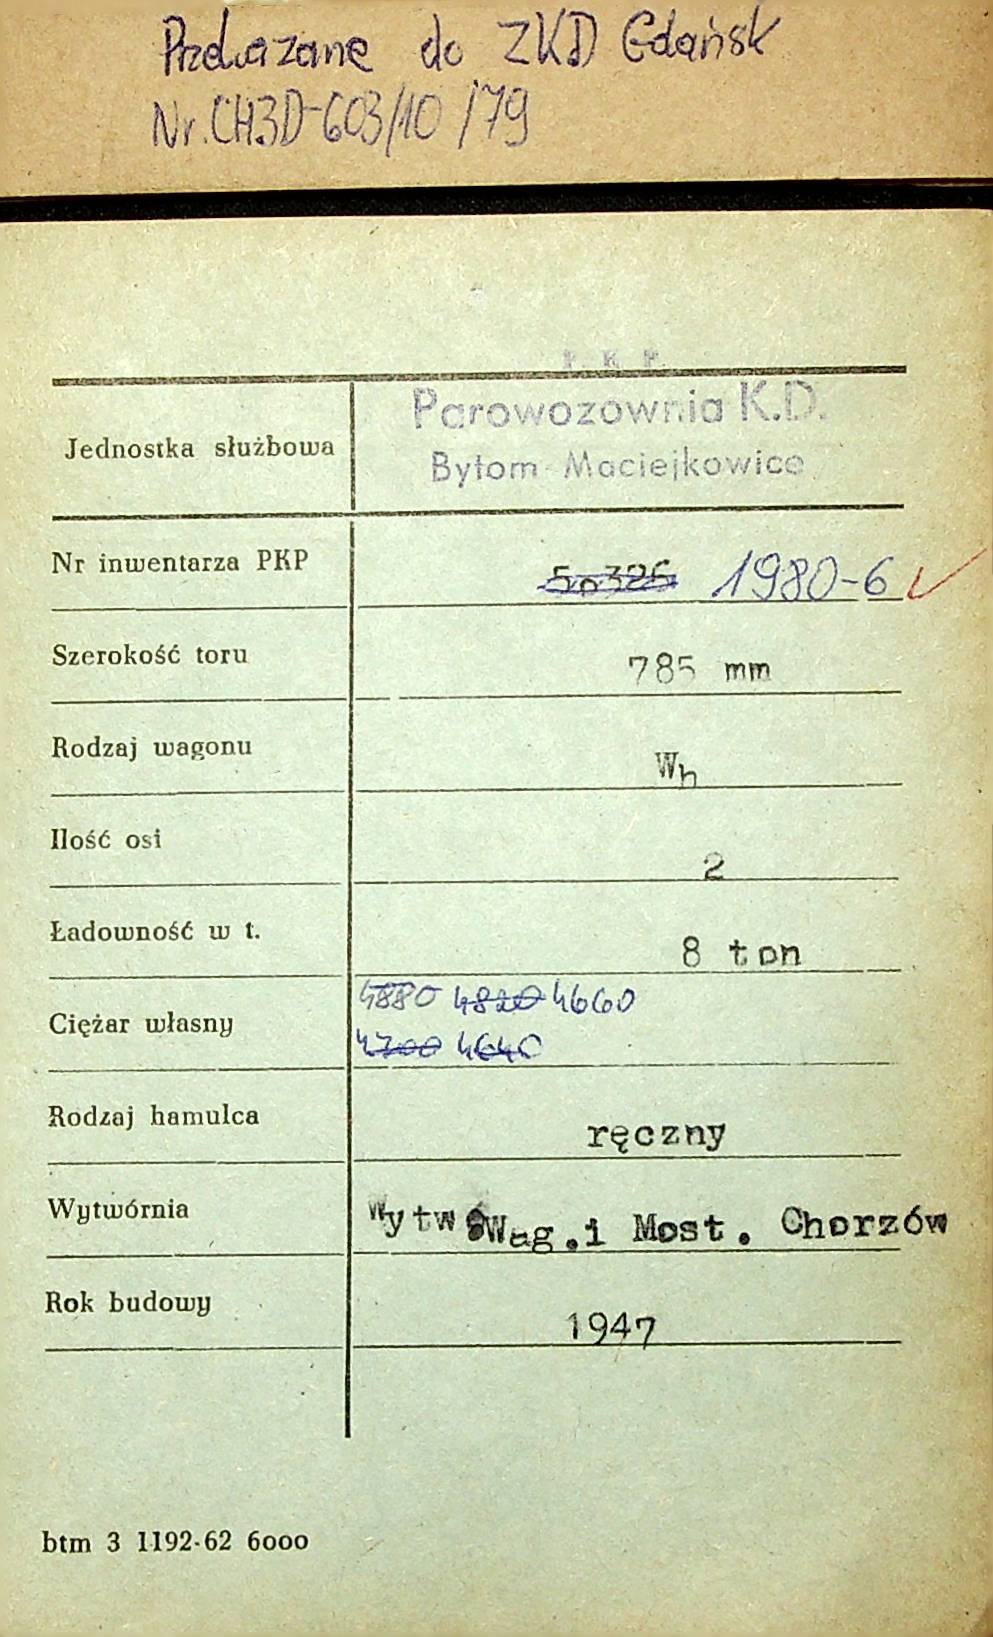 Przekazane do ZKD Gdańsk
Nr. CH3D-603/10/79
P. K. P.
Parowozownia K.D.
Bytom Maciejkowice
Jednostka służbowa
Nr inwentarza PKP 50326 1980-6
Szerokość toru 785 mm
Rodzaj wagonu Wh
Ilość osi 2
Ładowność w t. 8 ton
4880 4820 4660
Ciężar własny
4700 4640
Rodzaj hamulca ręczny
Wytwórnia Wytw. Wag. i Most. Chorzów
Rok budowy 1947
btm 3 1192-62 6000